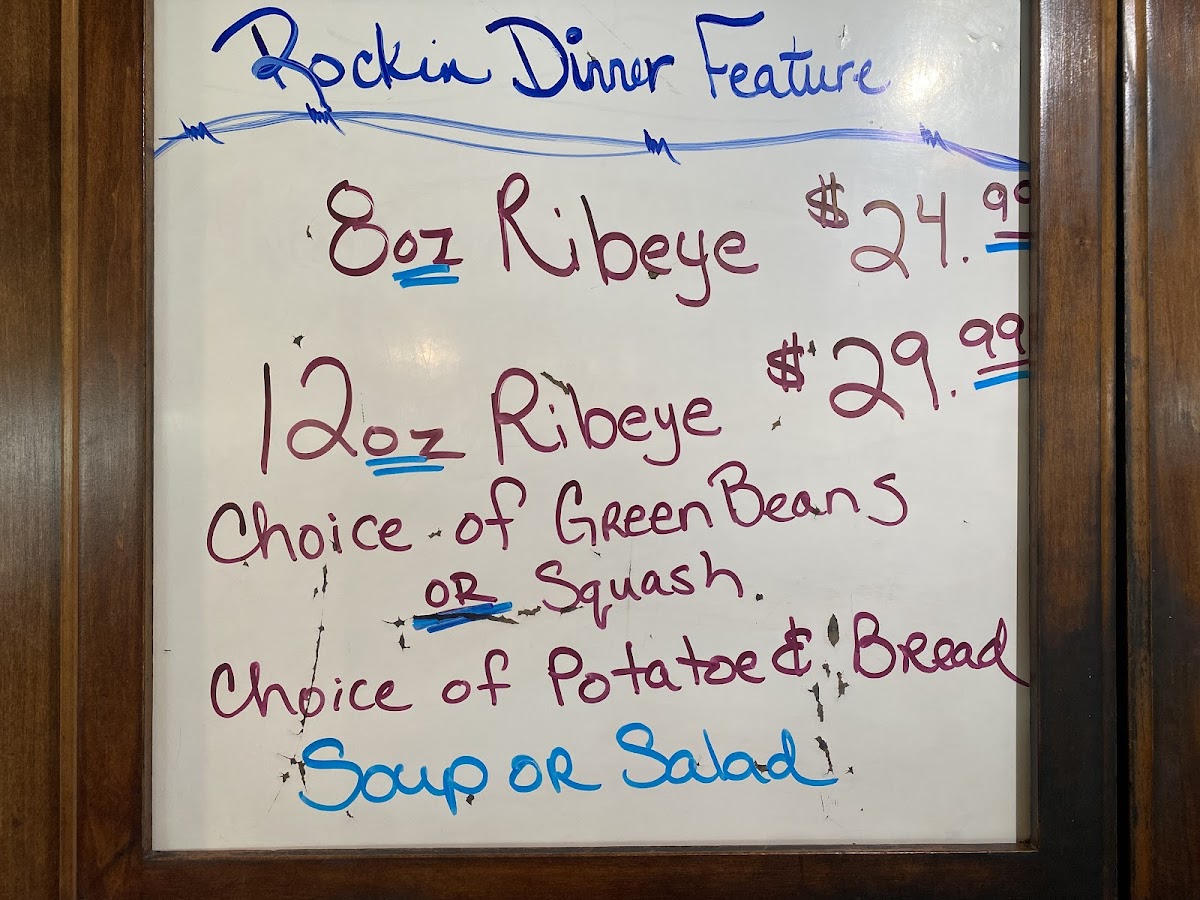 Rockin Dinner Feature
8oz Ribeye $24.99
12oz Ribeye $29.99
Choice of Green Beans
OR Squash.
Choice of Potatoe & Bread
Soup OR Salad